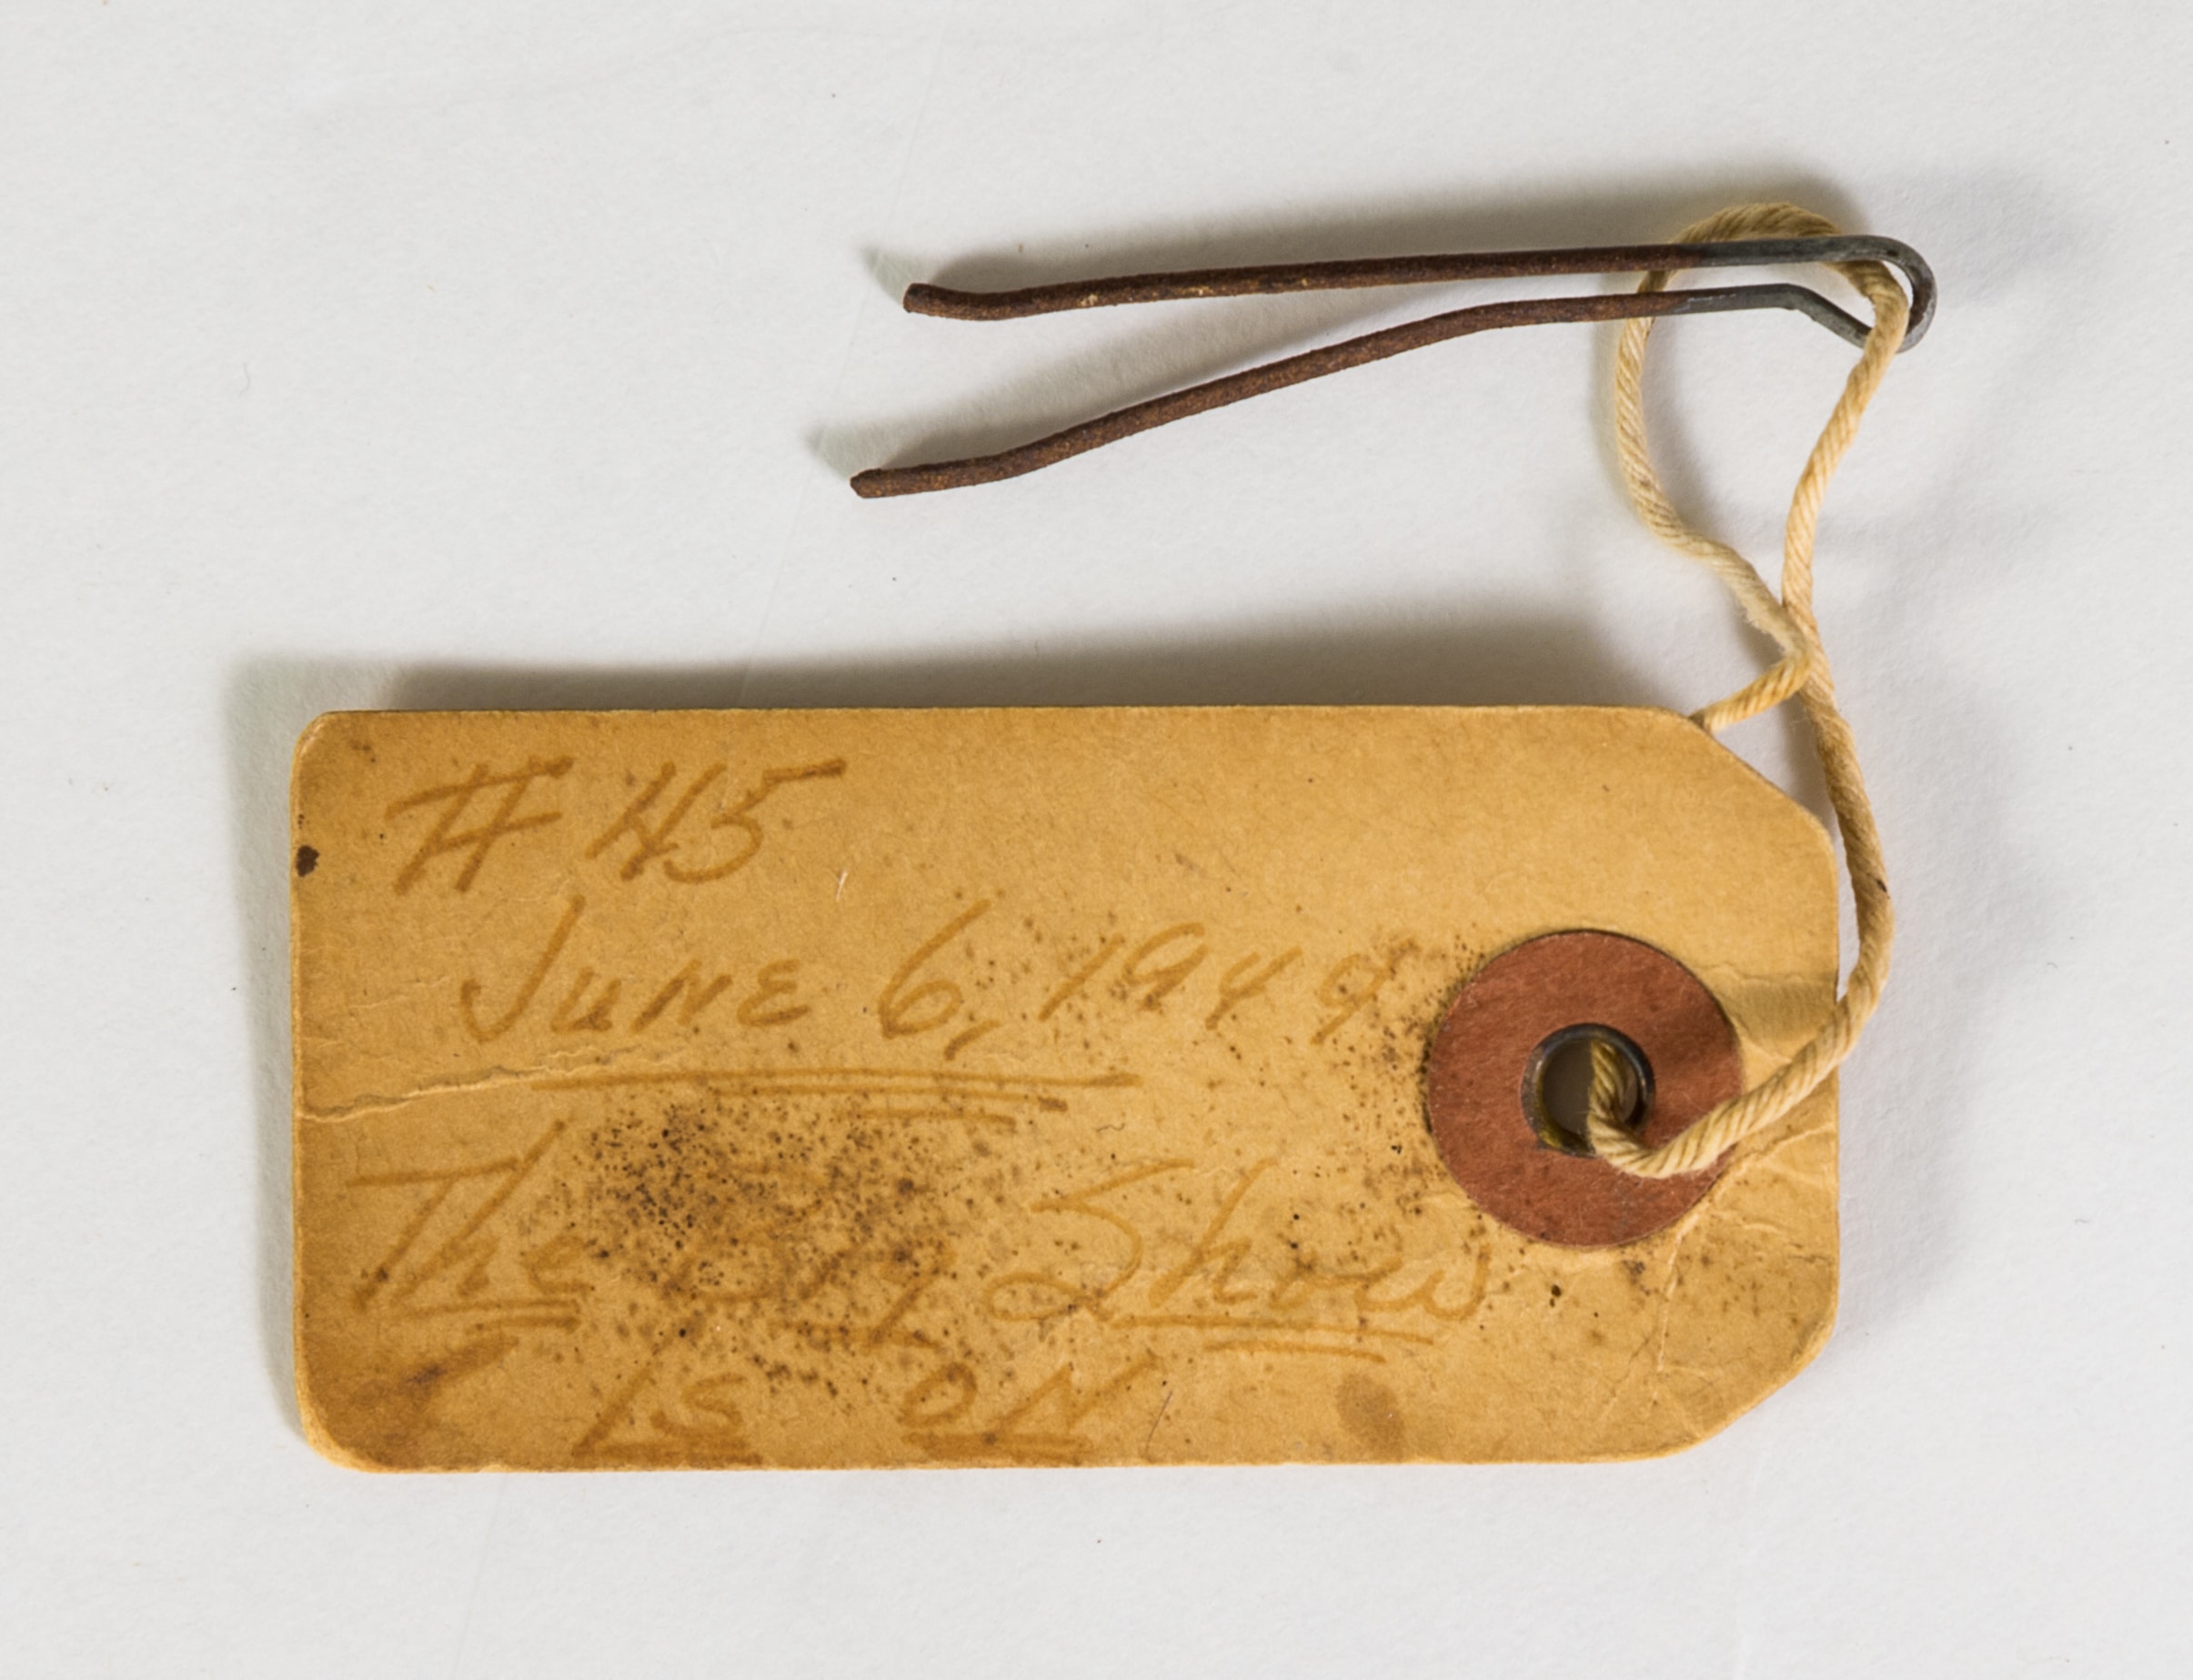 # 45
June 6, 1949
The Big Show
is on